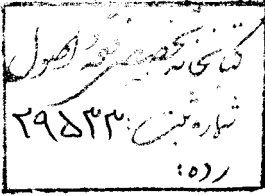 کتابخانه تخصصی فقه و اصول
شماره ثبت: ۲۹۵۳۳
رده: